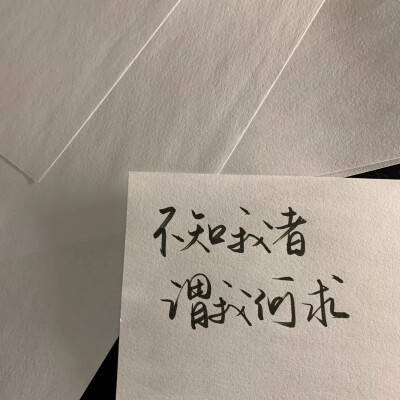 不知我者
谓我何求